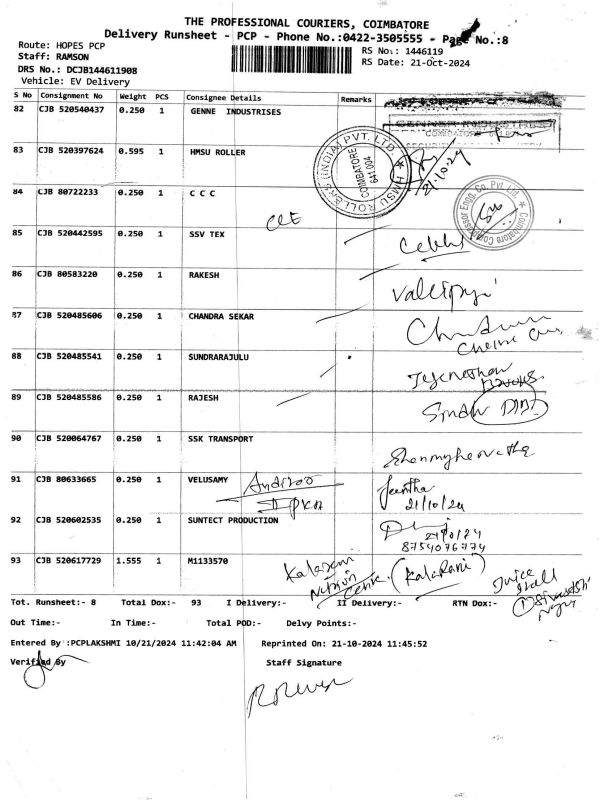 THE PROFESSIONAL COURIERS, COIMBATORE
Delivery Runsheet - PCP - Phone No.:0422-3505555 - Page No.:8
Route: HOPES PCP
Staff: RAMSON
DRS No.: DCJB144611908
Vehicle: EV Delivery
RS No.: 1446119
RS Date: 21-Oct-2024
S No Consignment No Weight PCS Consignee Details Remarks
82 CJB 520540437 0.250 1 GENNE INDUSTRISES
83 CJB 520397624 0.595 1 HMSU ROLLER
HMSU ROLLERS (INDIA) PVT. LTD.
COIMBATORE
641 004
21/10/24
84 CJB 80722233 0.250 1 C C C
Coimbatore Compressor Engg. Co. Pvt. Ltd.
85 CJB 520442595 0.250 1 SSV TEX
86 CJB 80583220 0.250 1 RAKESH
87 CJB 520485606 0.250 1 CHANDRA SEKAR
88 CJB 520485541 0.250 1 SUNDRARAJULU
89 CJB 520485586 0.250 1 RAJESH
90 CJB 520064767 0.250 1 SSK TRANSPORT
91 CJB 80633665 0.250 1 VELUSAMY
21/10/24
92 CJB 520602535 0.250 1 SUNTECT PRODUCTION
8754076774
93 CJB 520617729 1.555 1 M1133570
(KalaRani)
Juice
Stall
Tot. Runsheet:- 8 Total Dox:- 93 I Delivery:- II Delivery:- RTN Dox:-
Out Time:- In Time:- Total POD:- Delvy Points:-
Entered By :PCPLAKSHMI 10/21/2024 11:42:04 AM Reprinted On: 21-10-2024 11:45:52
Verified By Staff Signature